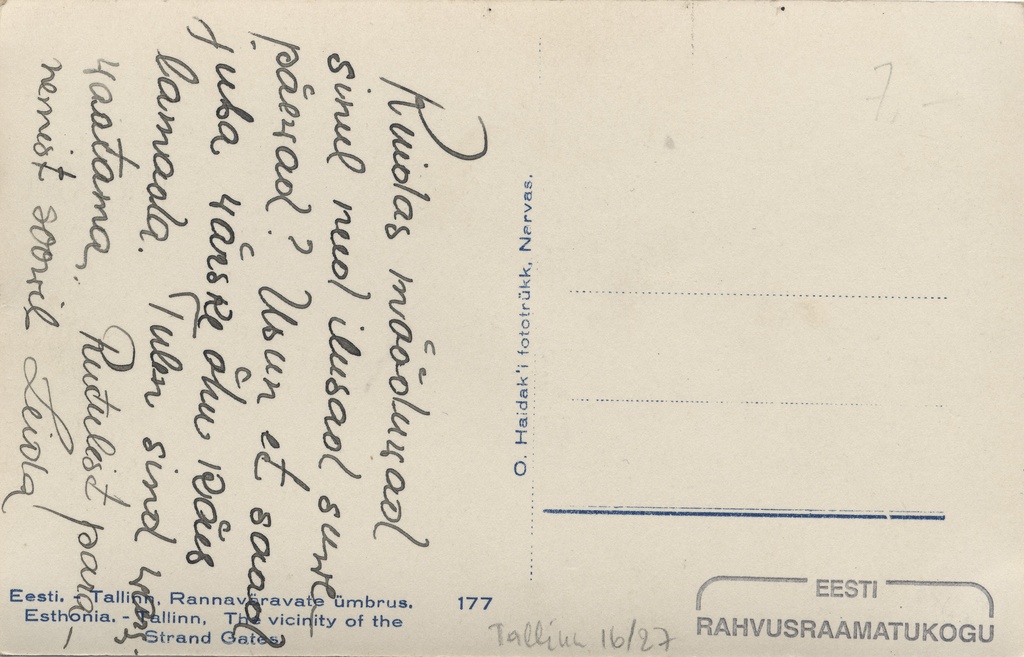 Kuidas mööduvad
sinul need ilusad suve-
päevad? Usun et saad
juba värske õhu käis
lamada. Tulen sind
vaatama. Rutulist para-
nemist soovil Leida
O. Haidak'i fototrükk, Narvas.
7,-
Eesti. - Tallinn, Rannaväravate ümbrus. 177
Esthonia. - Tallinn, The vicinity of the
Strand Gates
Tallinn 16/27
EESTI
RAHVUSRAAMATUKOGU